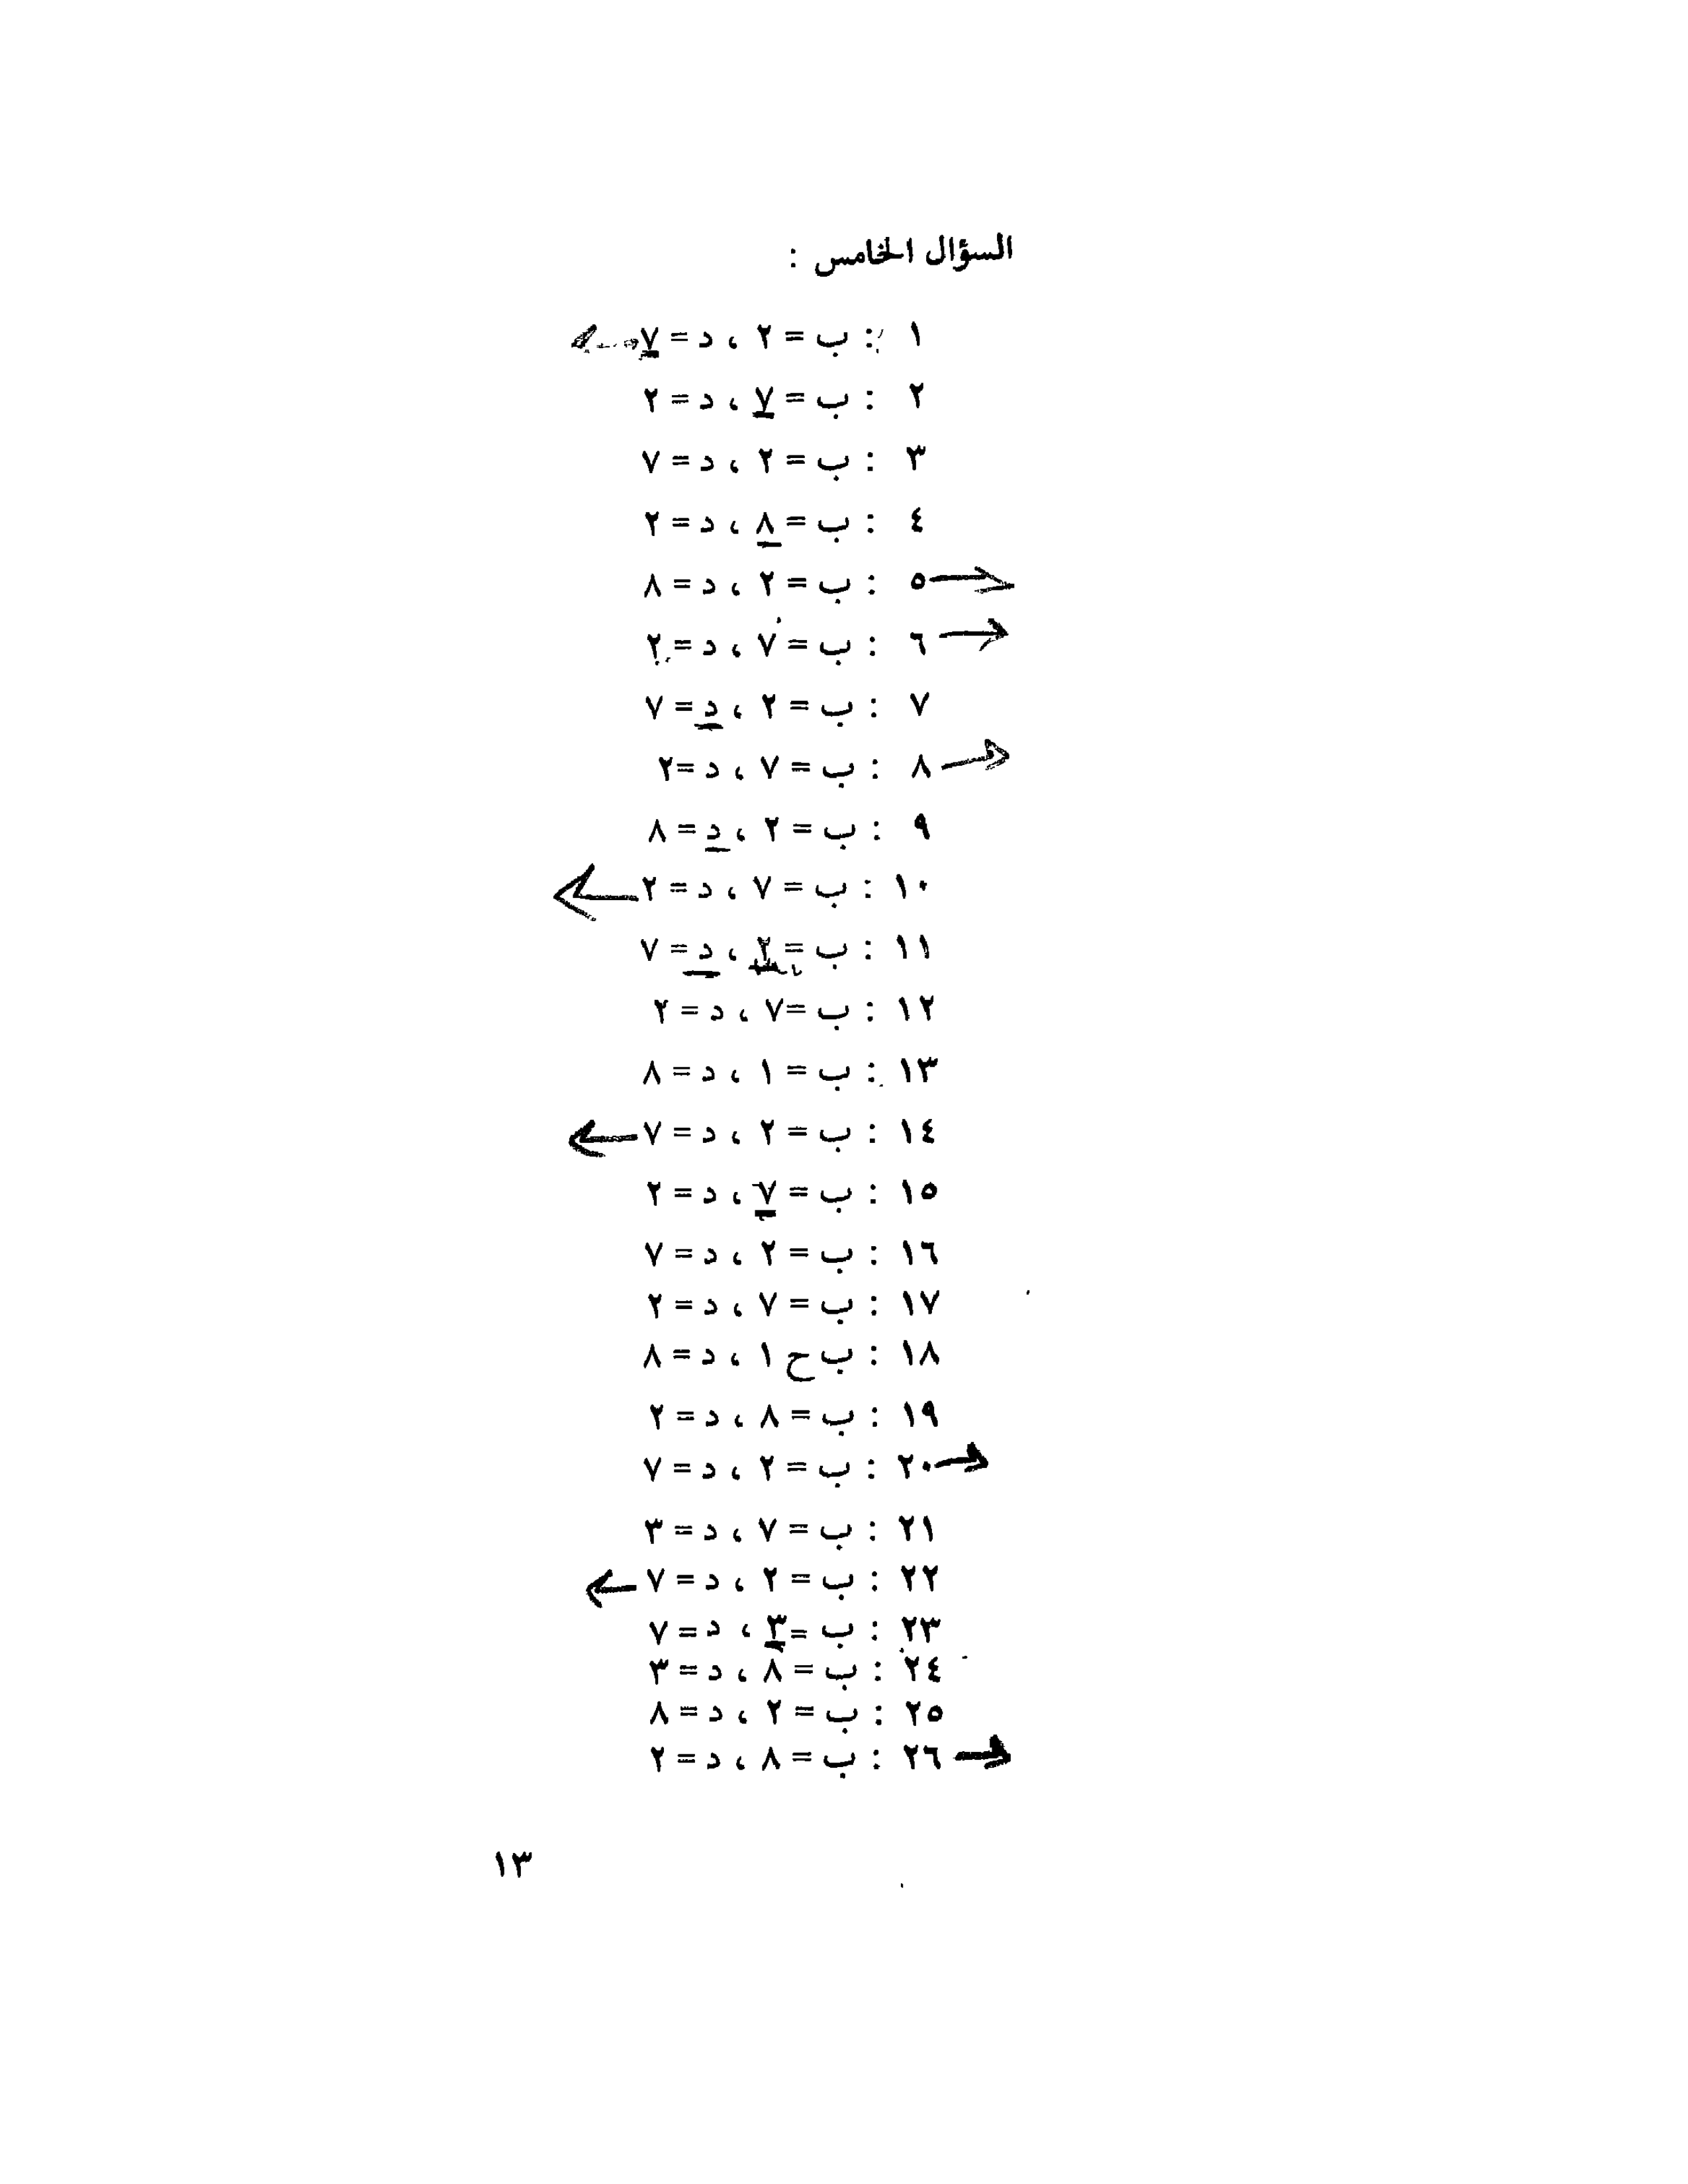 السؤال الخامس :
١ : ب = ٢ ، د = ٧
٢ : ب = ٧ ، د = ٢
٣ : ب = ٢ ، د = ٧
٤ : ب = ٨ ، د = ٢
٥ : ب = ٢ ، د = ٨
٦ : ب = ٧ ، د = ٢
٧ : ب = ٢ ، د = ٧
٨ : ب = ٧ ، د =٢
٩ : ب = ٢ ، د = ٨
١٠ : ب = ٧ ، د = ٢
١١ : ب = ٢ ، د = ٧
١٢ : ب =٧ ، د = ٢
١٣ : ب = ١ ، د = ٨
١٤ : ب = ٢ ، د = ٧
١٥ : ب = ٧ ، د = ٢
١٦ : ب = ٢ ، د = ٧
١٧ : ب = ٧ ، د = ٢
١٨ : ب ح ١ ، د = ٨
١٩ : ب = ٨ ، د = ٢
٢٠ : ب = ٢ ، د = ٧
٢١ : ب = ٧ ، د = ٣
٢٢ : ب = ٢ ، د = ٧
٢٣ : ب = ٣ ، د = ٧
٢٤ : ب = ٨ ، د = ٣
٢٥ : ب = ٢ ، د = ٨
٢٦ : ب = ٨ ، د = ٢
١٣